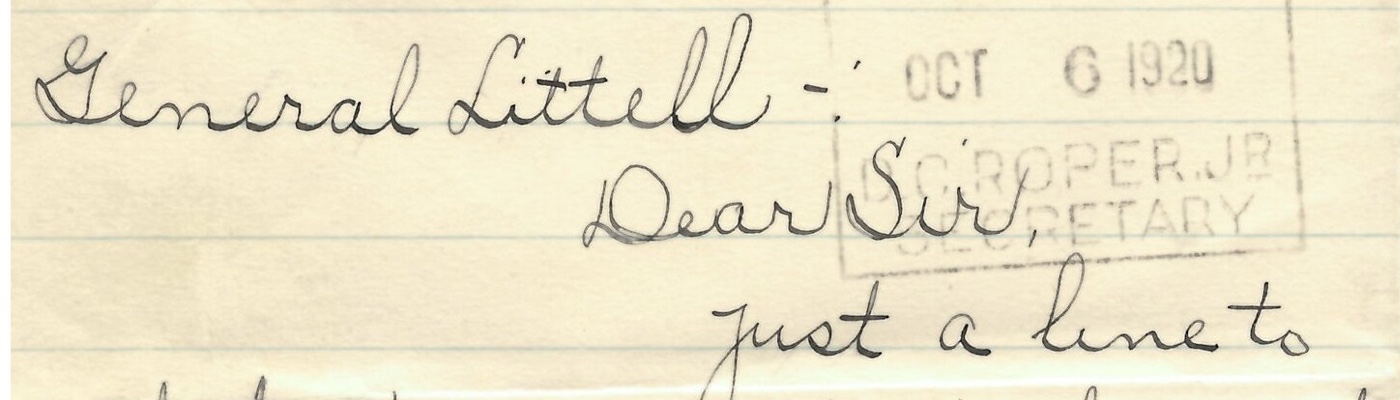 General Littell -:
OCT 6 1920
D.C. ROPER, JR
Dear Sir,
SECRETARY
just a line to